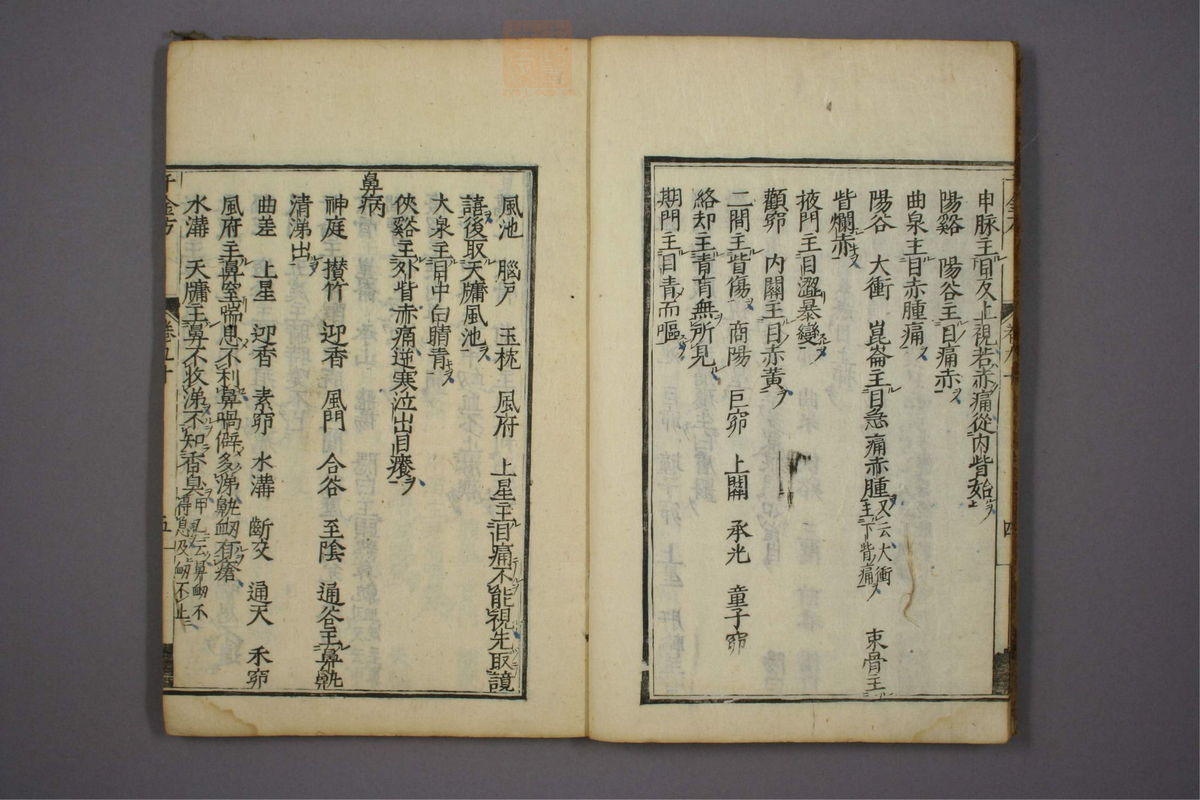 申脉主目反上視若赤痛從内眥始
陽谿　陽谷主目痛赤
曲泉主目赤腫痛
陽谷　大衝　崑崙主目急痛赤腫又云大衝主下眥痛　束骨主
眥爛赤
掖門主目澀暴變
顴窌　内關主目赤黃
二間主眥傷　商陽　巨窌　上關　承光　童子窌
絡却主青盲無所見
期門主目青而嘔
千金方　卷九十　四
風池　腦戶　玉枕　風府　上星主目痛不能視先取譩
譆後取天牖風池
大泉主目中白睛青
俠谿主外眥赤痛逆寒泣出目癢
鼻病
神庭　攅竹　迎香　風門　合谷　至陰　通谷主鼻鼽
清涕出
曲差　上星　迎香　素窌　水溝　齗交　通天　禾窌
風府主鼻窒喘息不利鼻喎僻多涕鼽衂有瘡
水溝　天牖主鼻不收涕不知香臭甲乙云鼻衂不得息及衂不止
千金方　卷九十　五